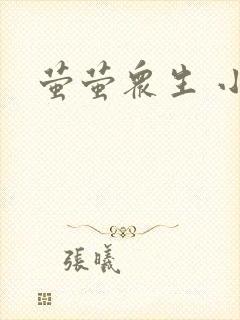 萤萤众生 小
張曦